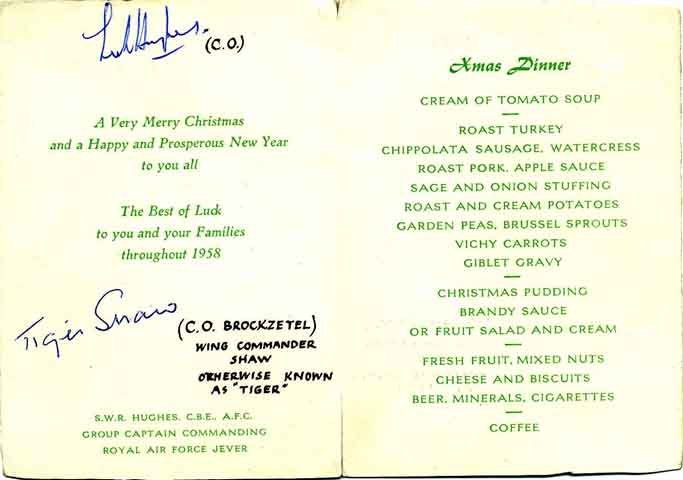 Hughes. (C.O.)
A Very Merry Christmas
and a Happy and Prosperous New Year
to you all
The Best of Luck
to you and your Families
throughout 1958
Tiger Shaw
(C.O. BROCKZETEL)
WING COMMANDER
SHAW
OTHERWISE KNOWN
AS "TIGER"
S.W.R. HUGHES, C.B.E., A.F.C.
GROUP CAPTAIN COMMANDING
ROYAL AIR FORCE JEVER
Xmas Dinner
CREAM OF TOMATO SOUP
ROAST TURKEY
CHIPPOLATA SAUSAGE, WATERCRESS
ROAST PORK, APPLE SAUCE
SAGE AND ONION STUFFING
ROAST AND CREAM POTATOES
GARDEN PEAS, BRUSSEL SPROUTS
VICHY CARROTS
GIBLET GRAVY
CHRISTMAS PUDDING
BRANDY SAUCE
OR FRUIT SALAD AND CREAM
FRESH FRUIT, MIXED NUTS
CHEESE AND BISCUITS
BEER, MINERALS, CIGARETTES
COFFEE